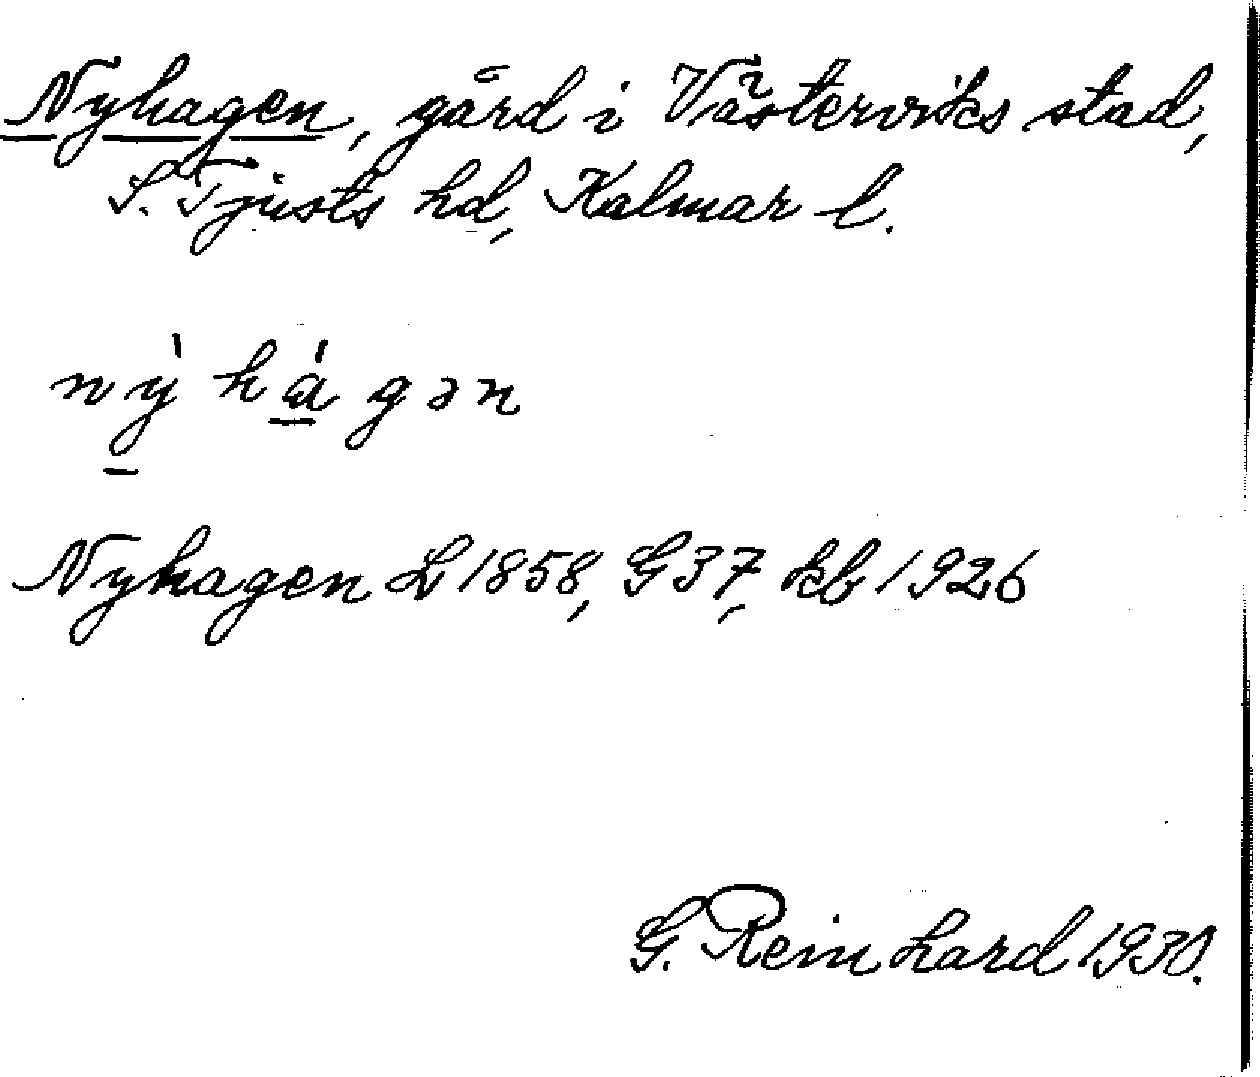 Nyhagen, gård i Västerviks stad,
S. Tjusts hd, Kalmar l.
nỳ há gən
Nyhagen L 1858, G 37, kb 1926
G. Reinhard 1930.